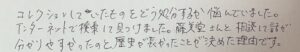 コレクションしていたものをどう処分するか悩んでいました。
インターネットで検索して見つけました。藤美堂さんと相談して話が
分かりやすかったのと、歴史が長かったことが決めた理由です。